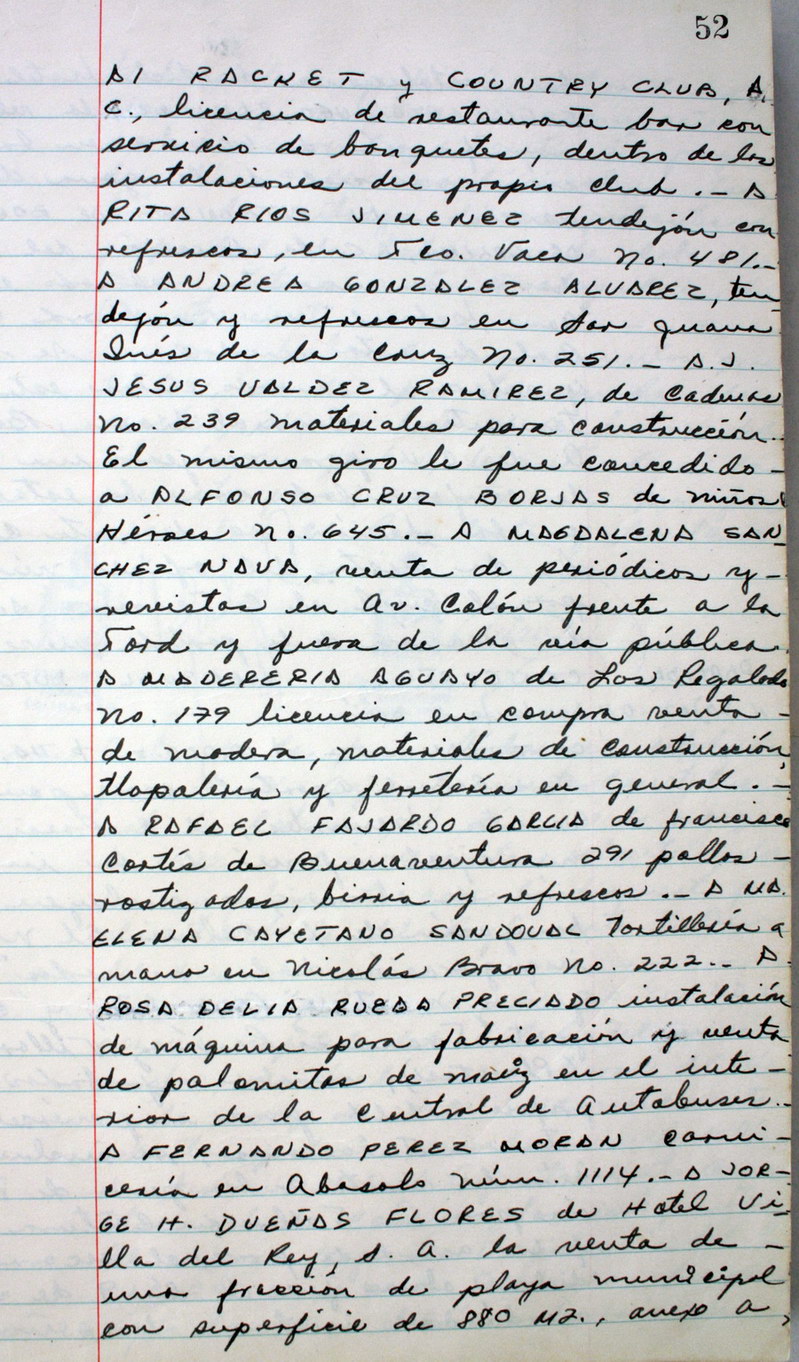 52
Al RACKET y COUNTRY CLUB, A.
C., licencia de restaurante bar con
servicio de banquetes, dentro de las
instalaciones del propio club.- A
RITA RIOS JIMENEZ tendejón con
refrescos, en Fco. Vaca No. 481.-
A ANDREA GONZALEZ ALVAREZ, ten
dejón y refrescos en Sor Juana
Inés de la Cruz No. 251.- A J.
JESUS VALDEZ RAMIREZ, de Cadenas
No. 239 materiales para construcción.-
El mismo giro le fue concedido -
a ALFONSO CRUZ BORJAS de Niños
Héroes No. 645.- A MAGDALENA SAN
CHEZ NAVA, venta de periódicos y -
revistas en Av. Colón frente a la
Ford y fuera de la vía pública.
A MADERERIA AGUAYO de Los Regalado
No. 179 licencia en compra venta -
de madera, materiales de construcción,
tlapalería y ferretería en general.-
A RAFAEL FAJARDO GARCIA de Francisco
Cortés de Buenaventura 291 pollos -
rostizados, birria y refrescos.- A MA.
ELENA CAYETANO SANDOVAL Tortillería a
mano en Nicolás Bravo No. 222.- A
ROSA DELIA RUEDA PRECIADO instalación
de máquina para fabricación y venta
de palomitas de maíz en el inte-
rior de la Central de Autobuses.-
A FERNANDO PEREZ MORAN Carni-
cería en Abasolo Núm. 1114.- A JOR-
GE H. DUEÑAS FLORES de Hotel Vi-
lla del Rey, S. A. la venta de -
una fracción de playa municipal
con superficie de 880 M2., anexo a